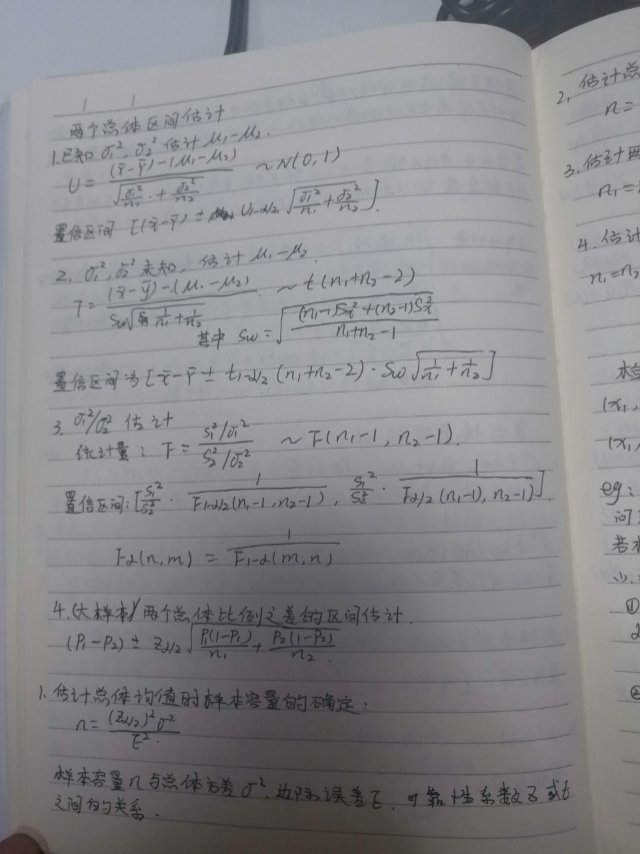 两个总体区间估计
1.已知 σ₁², σ₂² 估计 μ₁-μ₂.
U = ((x̄-ȳ)-(μ₁-μ₂)) / √(σ₁²/n₁ + σ₂²/n₂) ~ N(0,1)
置信区间 [(x̄-ȳ) ± U₁₋α/₂ √(σ₁²/n₁ + σ₂²/n₂)].
2. σ₁², σ₂² 未知, 估计 μ₁-μ₂.
T = ((x̄-ȳ)-(μ₁-μ₂)) / (Sw√(1/n₁ + 1/n₂)) ~ t(n₁+n₂-2)
其中 Sw = √(((n₁-1)S²+(n₂-1)S²) / (n₁+n₂-1))
置信区间为 [x̄-ȳ ± t₁₋α/₂ (n₁+n₂-2)·Sw √(1/n₁ + 1/n₂)]
3. σ₁²/σ₂² 估计
统计量: F = (S₁²/σ₁²) / (S₂²/σ₂²) ~ F(n₁-1, n₂-1).
置信区间: [S₁²/S₂² · 1/F₁₋α/₂(n₁-1, n₂-1), S₁²/S₂² · 1/Fα/₂(n₁-1), n₂-1)].
Fα(n,m) = 1/F₁₋α(m,n)
4.(大样本) 两个总体比例之差的区间估计.
(P₁-P₂) ± Zα/₂ √(P₁(1-P₁)/n₁ + P₂(1-P₂)/n₂)
1. 估计总体均值时样本容量的确定:
n = (Zα/₂)²σ² / E².
样本容量n与总体方差σ², 边际误差E, 可靠性系数Z或t
之间的关系.
2. 估计总
n =
3. 估计两
n₁=
4. 估计
n₁=n₂
(x₁,
(x₁,
eg:
问
若
①
②